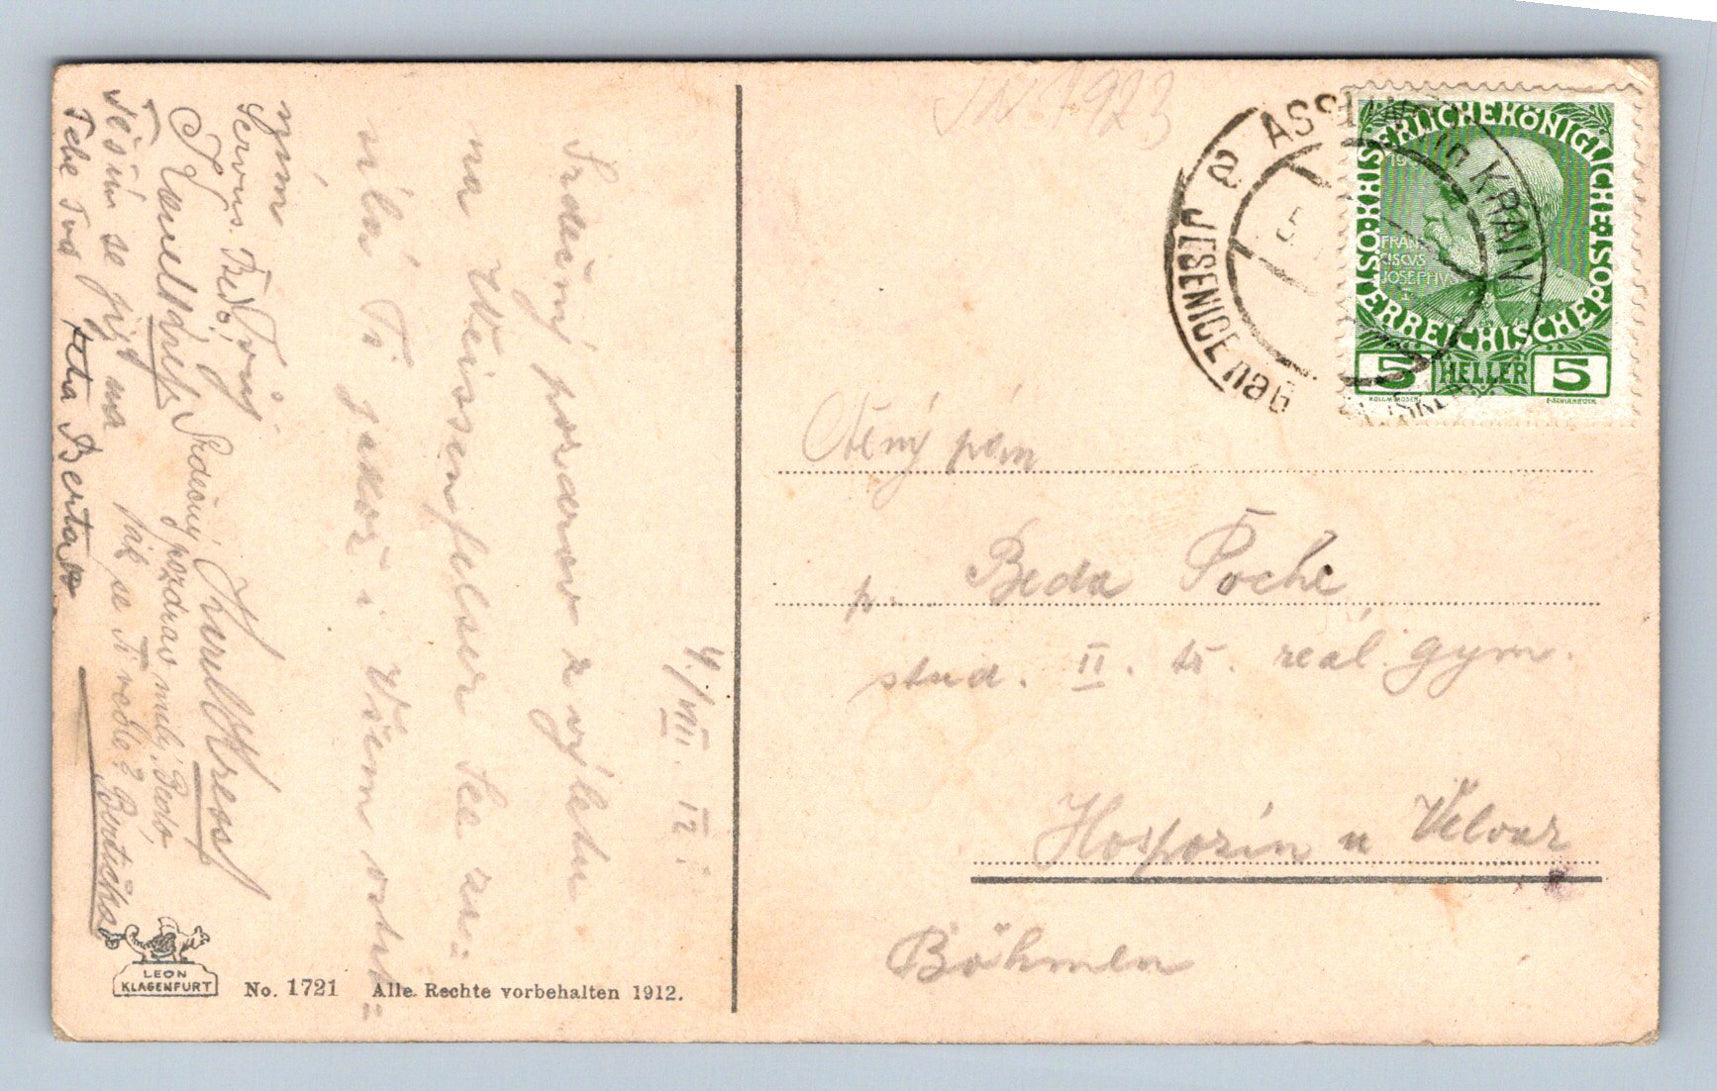 4./VIII. 12.
Srdečný pozdrav z výletu
na Weissenfelser See za-
sílá Ti jakož i Všem ostat-
ným
Tvůj
Karel Kress
Servus Bedo!
Srdečný pozdrav milý Bedo,
jak se Ti vede? Bertička
Těším se již na
Tebe Tvá teta Berta
LEON
KLAGENFURT
No. 1721 Alle Rechte vorbehalten 1912.
1923
ASSLING in KRAIN
JESENICE na G
5
KAISERLICHE KÖNIGLICHE ÖSTERREICHISCHE POST
FRAN
CISCVS
JOSEPHVS
I
5 HELLER 5
Ctěný pán
p. Beda Poche
stud. II. tř. reál. gym.
Hospozín u Velvar
Böhmen